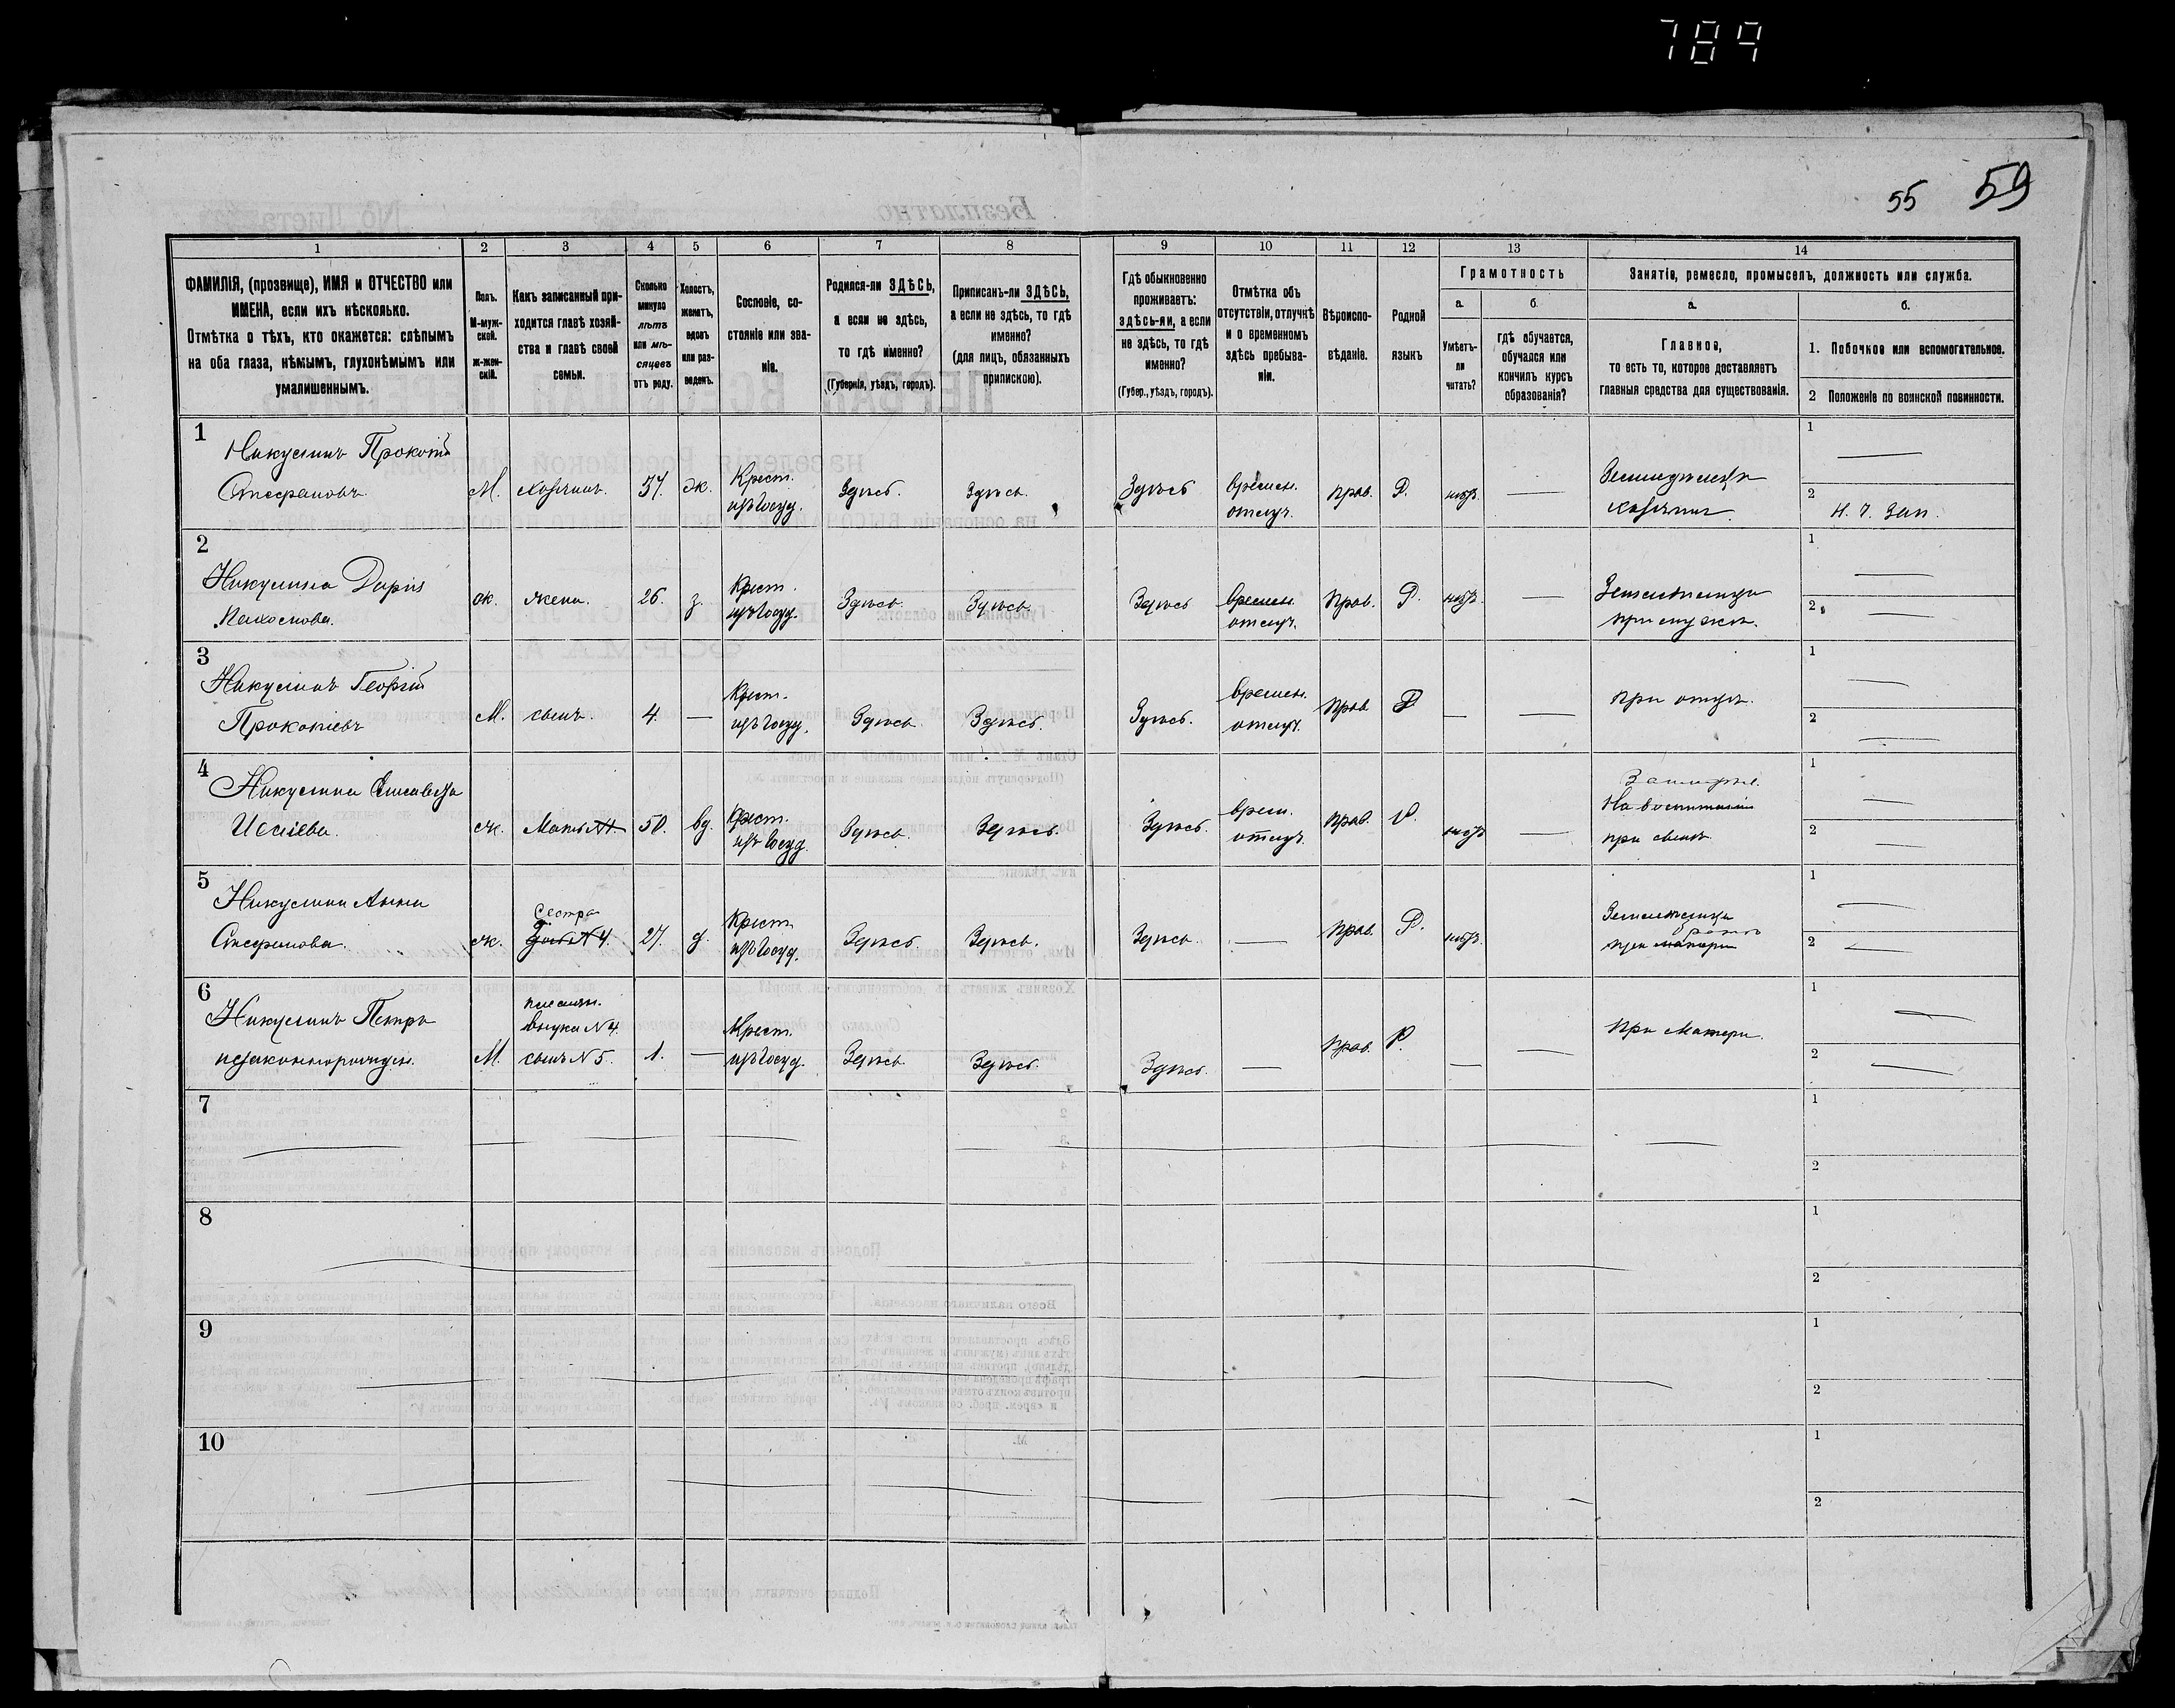 789
55 59
Безплатно.
1 2 3 4 5 6 7 8 9 10 11 12 13 14
ФАМИЛІЯ, (прозвище), ИМЯ и ОТЧЕСТВО или
ИМЕНА, если ихъ нѣсколько.
Отмѣтка о тѣхъ, кто окажется: слѣпымъ
на оба глаза, нѣмымъ, глухонѣмымъ или
умалишеннымъ.
Полъ.
М-муж-
ской.
ж-жен-
скій.
Какъ записанный при-
ходится главѣ хозяй-
ства и главѣ своей
семьи.
Сколько
минуло
лѣтъ
или мѣ-
сяцевъ
отъ роду.
Холостъ,
женатъ,
вдовъ
или раз-
веденъ.
Сословіе, со-
стояніе или зва-
ніе.
Родился-ли ЗДѢСЬ,
а если не здѣсь,
то гдѣ именно?
(Губернія, уѣздъ, городъ).
Приписанъ-ли ЗДѢСЬ,
а если не здѣсь, то гдѣ
именно?
(для лицъ, обязанныхъ
припискою).
Гдѣ обыкновенно
проживаетъ:
здѣсь-ли, а если
не здѣсь, то гдѣ
именно?
(Губер., уѣздъ, городъ).
Отмѣтка объ
отсутствіи, отлучкѣ
и о временномъ
здѣсь пребыва-
ніи.
Вѣроиспо-
вѣданіе.
Родной
языкъ
Грамотность
а.
Умѣетъ-
ли
читать?
б.
гдѣ обучается,
обучался или
кончилъ курсъ
образованія?
Занятіе, ремесло, промыселъ, должность или служба.
а.
Главное,
то есть то, которое доставляетъ
главныя средства для существованія.
б.
1. Побочное или вспомогательное.
2 Положеніе по воинской повинности.
1
Никулинъ Прокопій
Стефановъ
М. хозяинъ. 37. ж.
Крест.
изъ госуд.
Здѣсь. Здѣсь. Здѣсь
времен.
отлуч.
прав. Р. нѣтъ. —
хозяинъ
1 —
2 Н. Ч. Зап.
2
Никулина Дарія
ж. жена. 26. з.
Крест.
изъ госуд.
Здѣсь. Здѣсь. Здѣсь
времен.
отлуч.
Прав. Р. нѣтъ. —
при мужѣ.
1 —
2 —
3
Никулинъ Георгій
Прокопіевъ
М. сынъ. 4. —
Крест.
изъ госуд.
Здѣсь Здѣсь. Здѣсь.
времен.
отлуч.
Прав. Р — —
при отцѣ.
1 —
2 —
4
Никулина Елисавета
Исаіева.
ж. Мать №1 50. вд.
Крест.
изъ госуд.
Здѣсь. Здѣсь. Здѣсь.
врем.
отлуч.
прав. Р. нѣтъ —
На воспитаніи
при сынѣ
1 —
2 —
5
Никулина Анна
Стефанова.
ж.
Сестра
дочь №4.
27. д.
Крест.
изъ госуд.
Здѣсь. Здѣсь. Здѣсь. —
Прав. Р. нѣтъ. —
братѣ
при матери
1 —
2 —
6
Никулинъ Петръ
незаконнорожден.
М.
племян.
внукъ №4.
сынъ №5.
1. —
Крест.
изъ госуд.
Здѣсь Здѣсь. Здѣсь. —
Прав. Р. — —
при Матери.
1 —
2 —
7
1
2
8
1
2
9
1
2
10
1
2